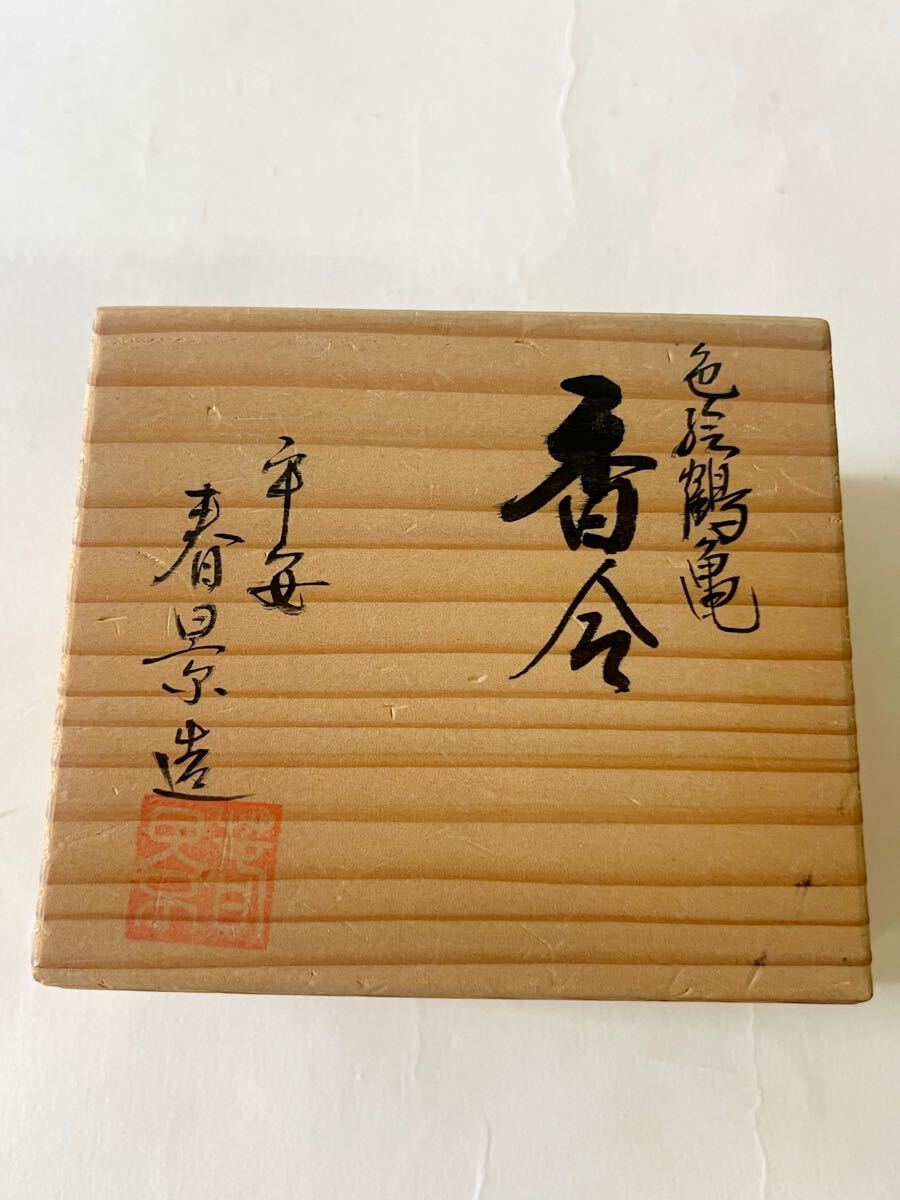 色絵鶴亀
香合
平安
春景造